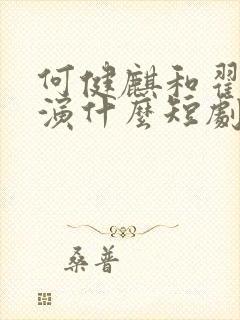 何健麒和翟
演什麼短劇
桑普